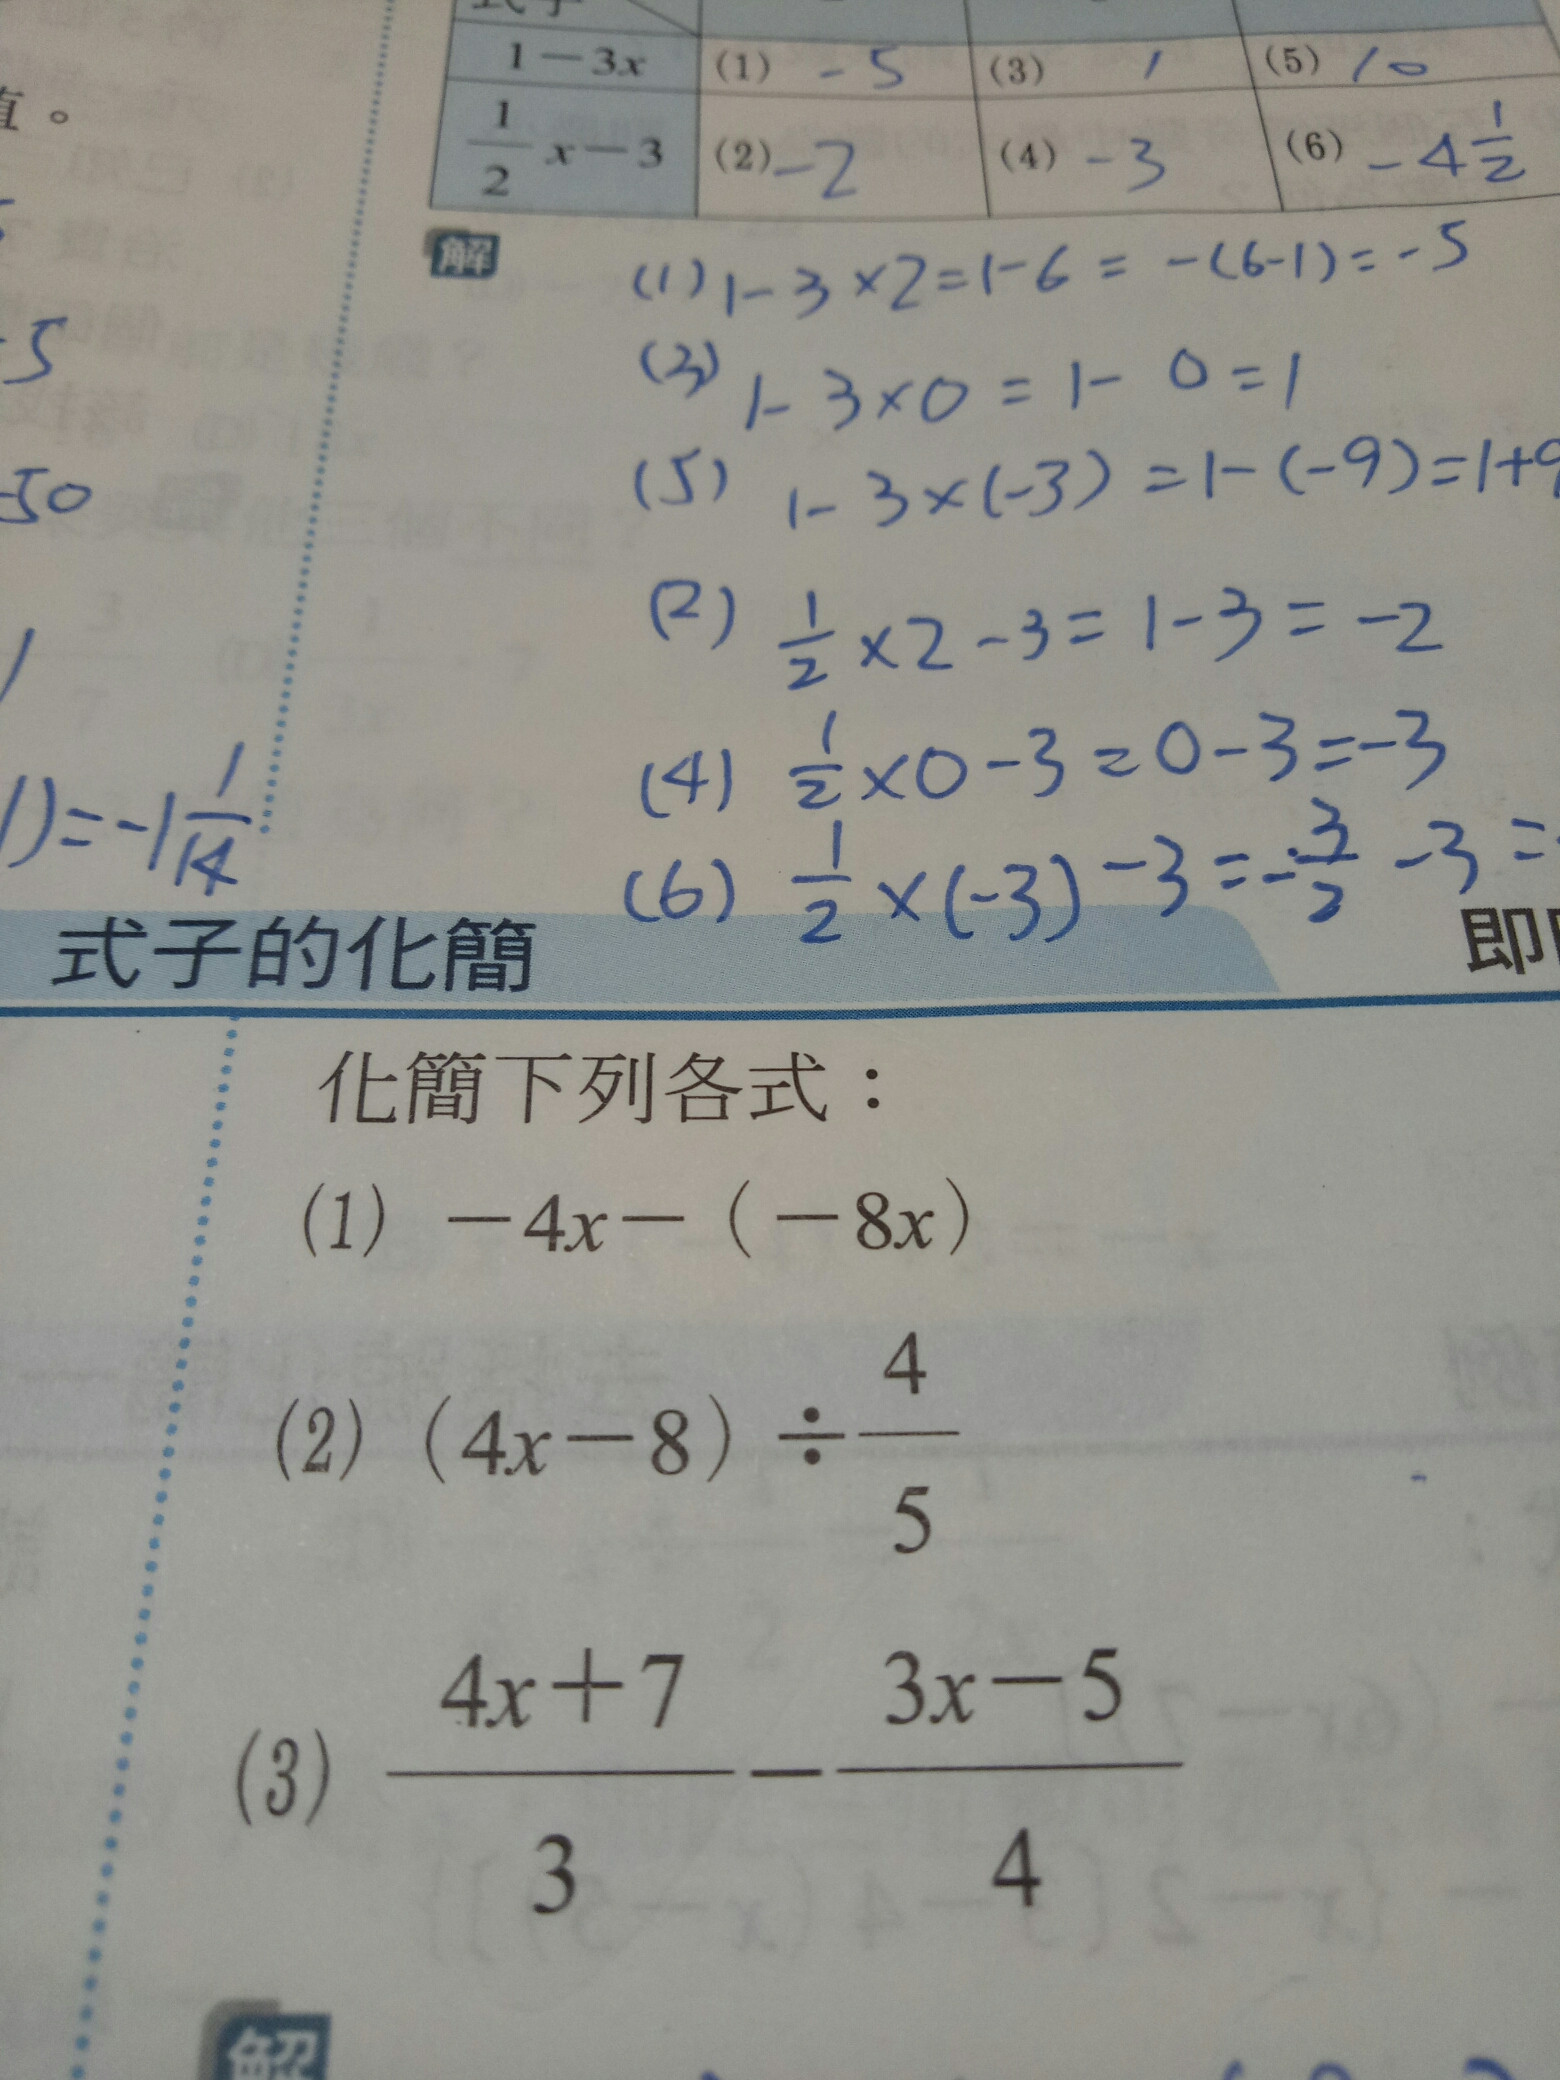 式子
1－3x (1) -5 (3) 1 (5) 10
1/2 x－3 (2) -2 (4) -3 (6) -4 1/2
值。
解
(1) 1-3×2=1-6=-(6-1)=-5
(3) 1-3×0=1-0=1
(5) 1-3×(-3)=1-(-9)=1+9
(2) 1/2×2-3=1-3=-2
(4) 1/2×0-3=0-3=-3
(6) 1/2×(-3)-3=-3/2-3=
-5
-50
1)=-1 1/14
式子的化簡
即
化簡下列各式：
(1) －4x－（－8x）
(2)（4x－8）÷4/5
(3) 4x＋7/3－3x－5/4
解